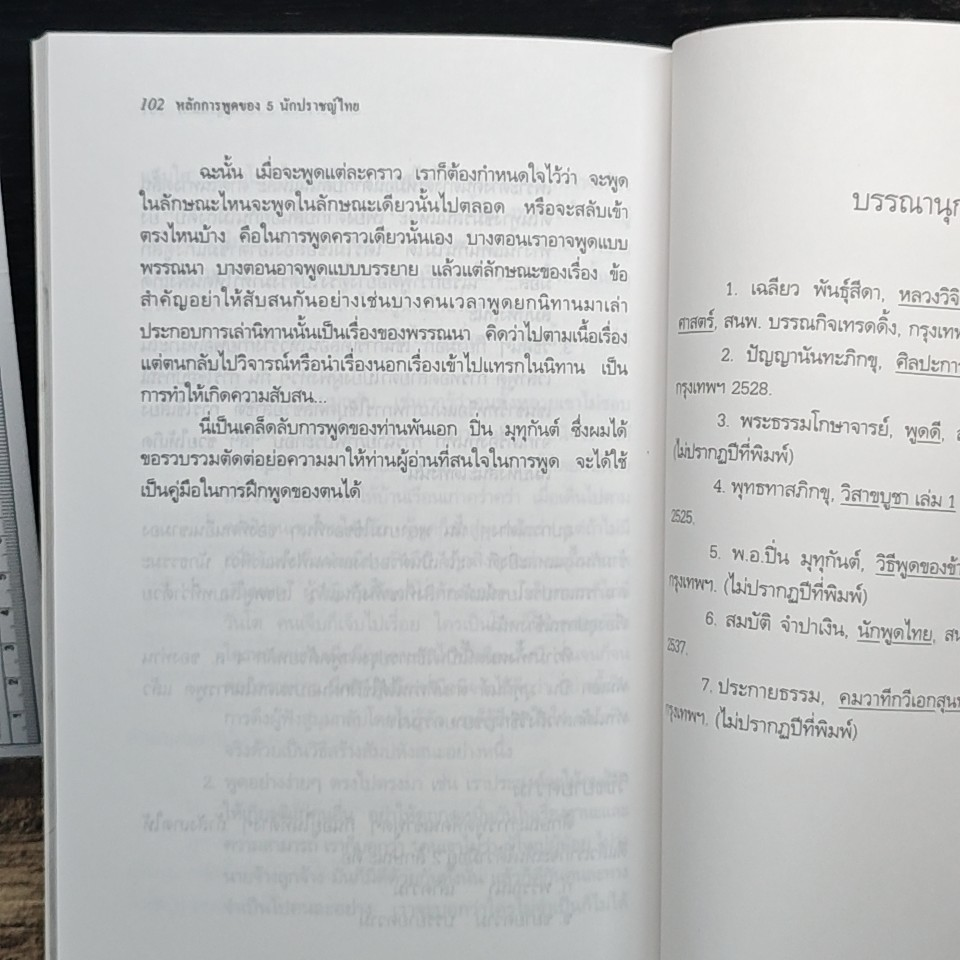 102 หลักการพูดของ 5 นักปราชญ์ไทย
ฉะนั้น เมื่อจะพูดแต่ละคราว เราก็ต้องกำหนดใจไว้ว่า จะพูด
ในลักษณะไหนจะพูดในลักษณะเดียวนั้นไปตลอด หรือจะสลับเข้า
ตรงไหนบ้าง คือในการพูดคราวเดียวนั้นเอง บางตอนเราอาจพูดแบบ
พรรณนา บางตอนอาจพูดแบบบรรยาย แล้วแต่ลักษณะของเรื่อง ข้อ
สำคัญอย่าให้สับสนกันอย่างเช่นบางคนเวลาพูดยกนิทานมาเล่า
ประกอบการเล่านิทานนั้นเป็นเรื่องของพรรณนา คิดว่าไปตามเนื้อเรื่อง
แต่ตนกลับไปวิจารณ์หรือนำเรื่องนอกเรื่องเข้าไปแทรกในนิทาน เป็น
การทำให้เกิดความสับสน...
นี่เป็นเคล็ดลับการพูดของท่านพันเอก ปิ่น มุทุกันต์ ซึ่งผมได้
ขอรวบรวมตัดต่อย่อความมาให้ท่านผู้อ่านที่สนใจในการพูด จะได้ใช้
เป็นคู่มือในการฝึกพูดของตนได้
บรรณานุก
1. เฉลียว พันธุ์สีดา, หลวงวิจิ
ศาสตร์, สนพ. บรรณกิจเทรดดิ้ง, กรุงเทพ
2. ปัญญานันทะภิกขุ, ศิลปะกา
กรุงเทพฯ 2528.
3. พระธรรมโกษาจารย์, พูดดี,
(ไม่ปรากฏปีที่พิมพ์)
4. พุทธทาสภิกขุ, วิสาขบูชา เล่ม 1
2525.
5. พ.อ.ปิ่น มุทุกันต์, วิธีพูดของข้า
กรุงเทพฯ. (ไม่ปรากฏปีที่พิมพ์)
6. สมบัติ จำปาเงิน, นักพูดไทย, สน
2537.
7. ประกายธรรม, คมวาทีกวีเอกสุนท
กรุงเทพฯ. (ไม่ปรากฏปีที่พิมพ์)